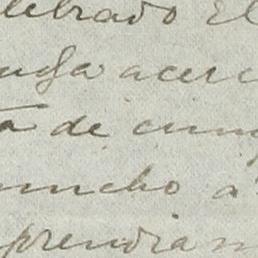 lebrado El
uga acerc
a de cum
mucho a
prendian